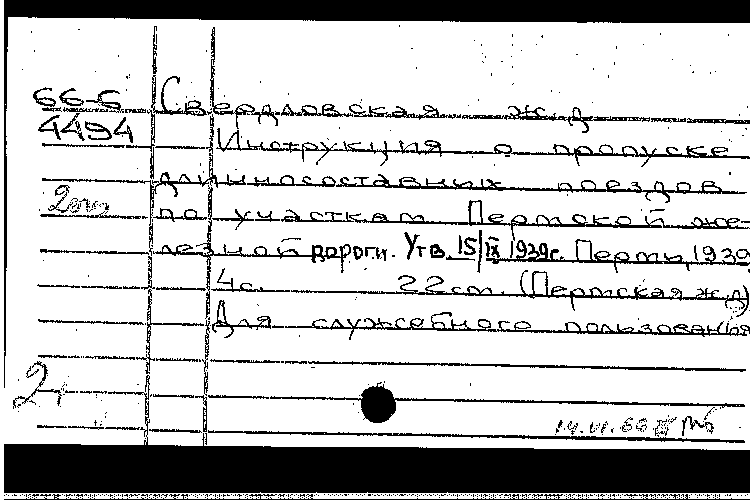 66-5 Свердловская ж.д
4494 Инструкция о пропуске
длинносоставных поездов
по участкам Пермской же-
лезной дороги. Утв. 15/IX 1939г. Пермь, 1939
4с. 22см. (Пермская ж.д)
Для служебного пользования
2
14.VI.66